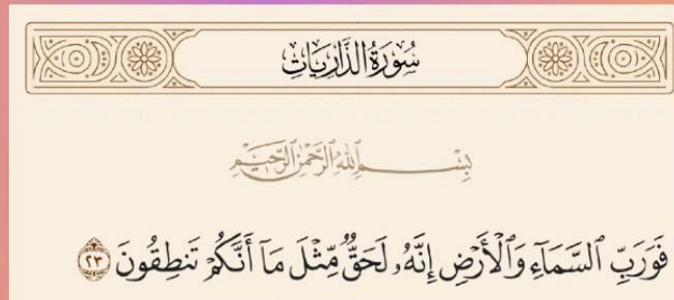 سُورَةُ الذَّارِيَاتِ
بِسْمِ اللَّهِ الرَّحْمَٰنِ الرَّحِيمِ
فَوَرَبِّ ٱلسَّمَآءِ وَٱلْأَرْضِ إِنَّهُۥ لَحَقٌّ مِّثْلَ مَآ أَنَّكُمْ تَنطِقُونَ ٢٣